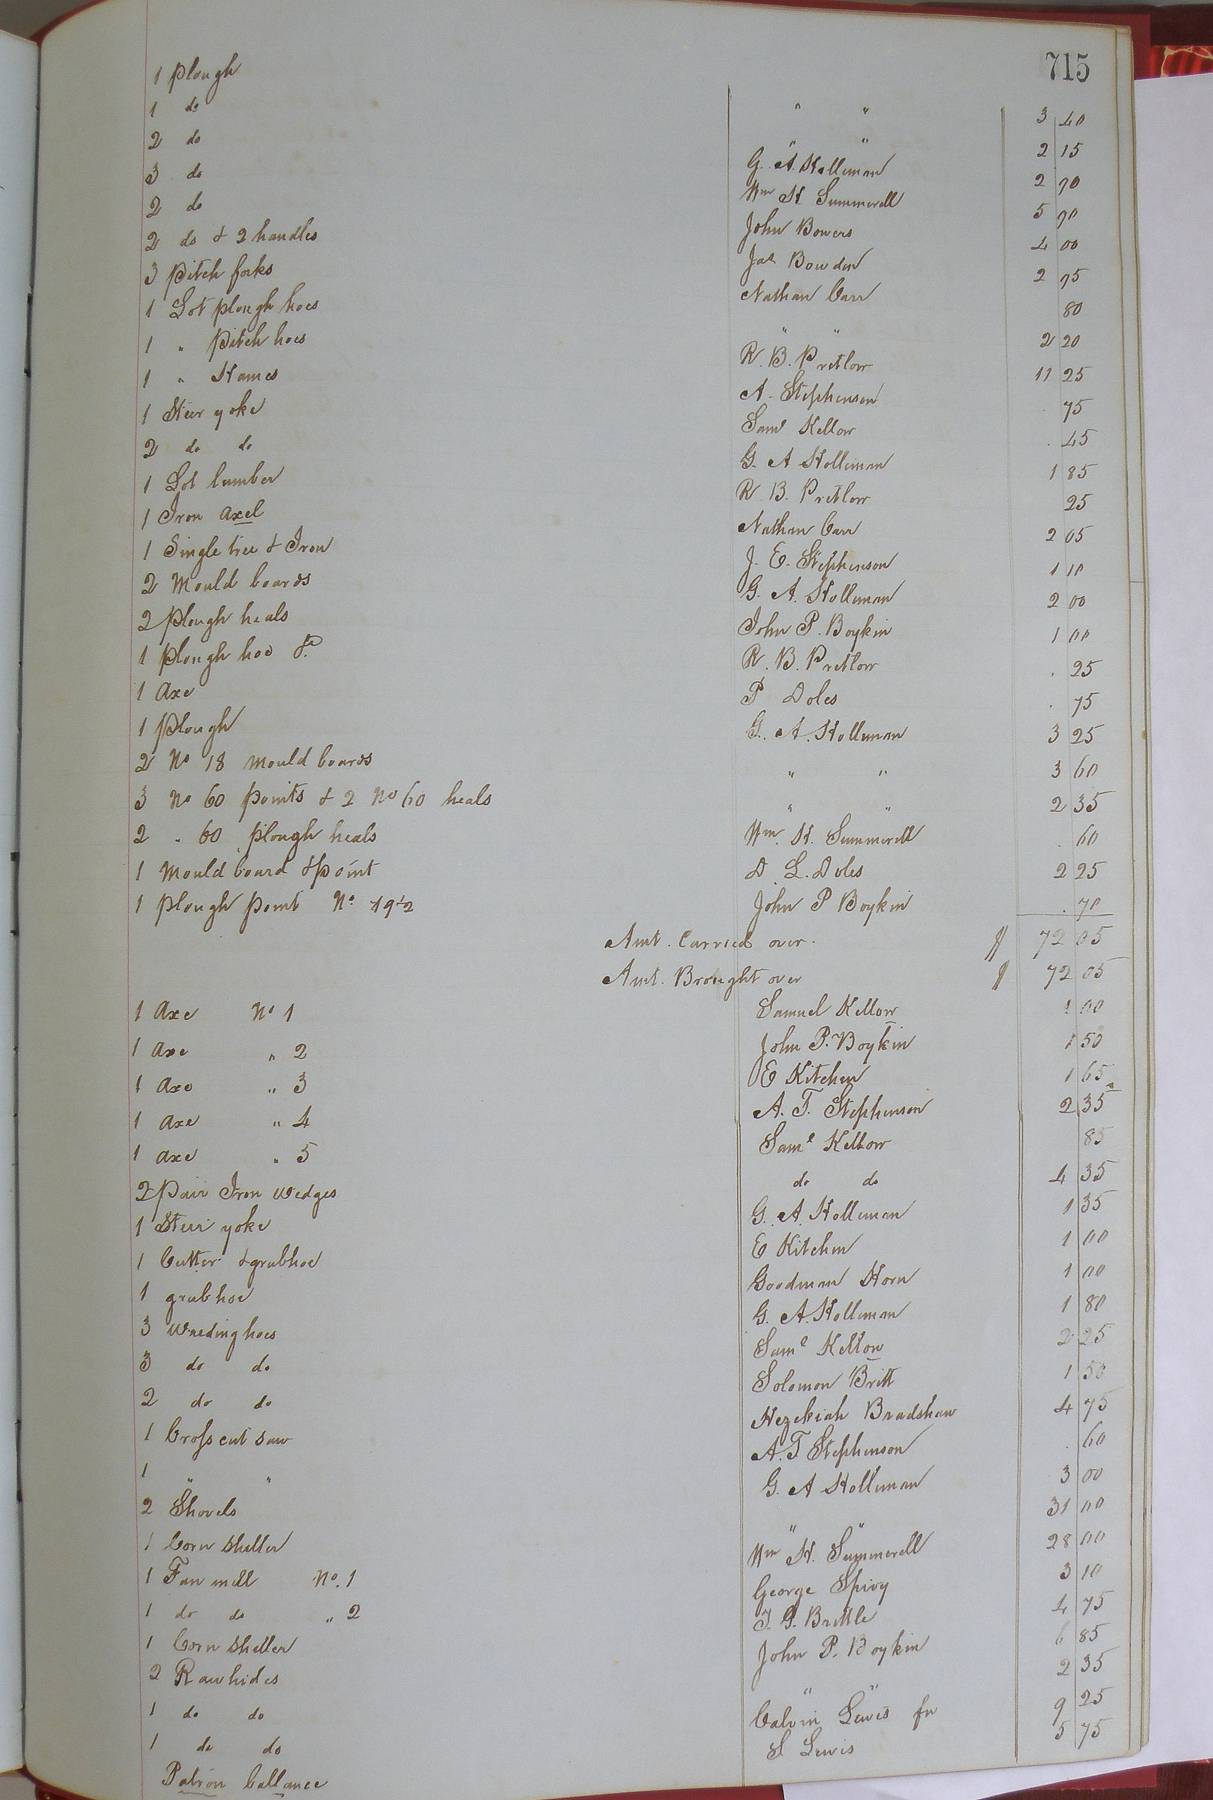 715
1 plough " " 3 40
1 do " " 2 15
2 do G. A. Holleman 2 90
3 do Wm H. Summerell 5 90
2 do John Bowers 4 00
2 do & 2 handles Jas Bowden 2 95
3 pitch forks Nathan Carr 80
1 Lot plough hoes " " 2 20
1 " pitch hoes R. B. Pretlow 11 25
1 " Hames A. Stephenson 75
1 Steer yoke Saml Kellow 45
2 do do G. A Holleman 1 85
1 Lot lumber R. B. Pretlow 25
1 Iron axel Nathan Carr 2 05
1 Single tree & Iron J. E. Stephenson 1 10
2 Mould boards G. A. Holleman 2 00
2 plough heals John P. Boykin 1 00
1 plough hoe &c R. B. Pretlow 25
1 Axe P Doles 75
1 plough G. A. Holleman 3 25
2 No 18 mould boards " " 3 60
3 No 60 points & 2 No 60 heals " " 2 35
2 " 60 plough heals Wm. H. Summerell 60
1 Mould board & point D. L. Doles 2 25
1 plough point No 19½ John P Boykin 70
Amt. Carried over $ 72 05
Amt. Brought over $ 72 05
1 Axe No 1 Samuel Kellow 1 00
1 Axe " 2 John P. Boykin 1 50
1 Axe " 3 E Kitchen 1 65
1 axe " 4 A. T. Stephenson 2 35
1 axe " 5 Saml Kellow 85
2 pair Iron wedges do do 4 35
1 Steer yoke G. A. Holleman 1 35
1 Cutter & grubhoe E Kitchen 1 00
1 grubhoe Goodman Horn 1 00
3 weeding hoes G. A. Holleman 1 80
3 do do Saml Kellow 2 25
2 do do Solomon Britt 1 50
1 Cross cut saw Hezekiah Bradshaw 4 75
1 " " A. T Stephenson 60
2 Shovels G. A Holleman 3 00
1 Corn Sheller " " 31 00
1 Fan mill No. 1 Wm H. Summerell 28 00
1 do do " 2 George Spivy 3 10
1 Corn Sheller T. G. Brittle 4 75
2 Rawhides John P. Boykin 6 85
1 do do " " 2 35
1 do do Calvin Lewis fn 9 25
Patron ballance S Lewis 5 75